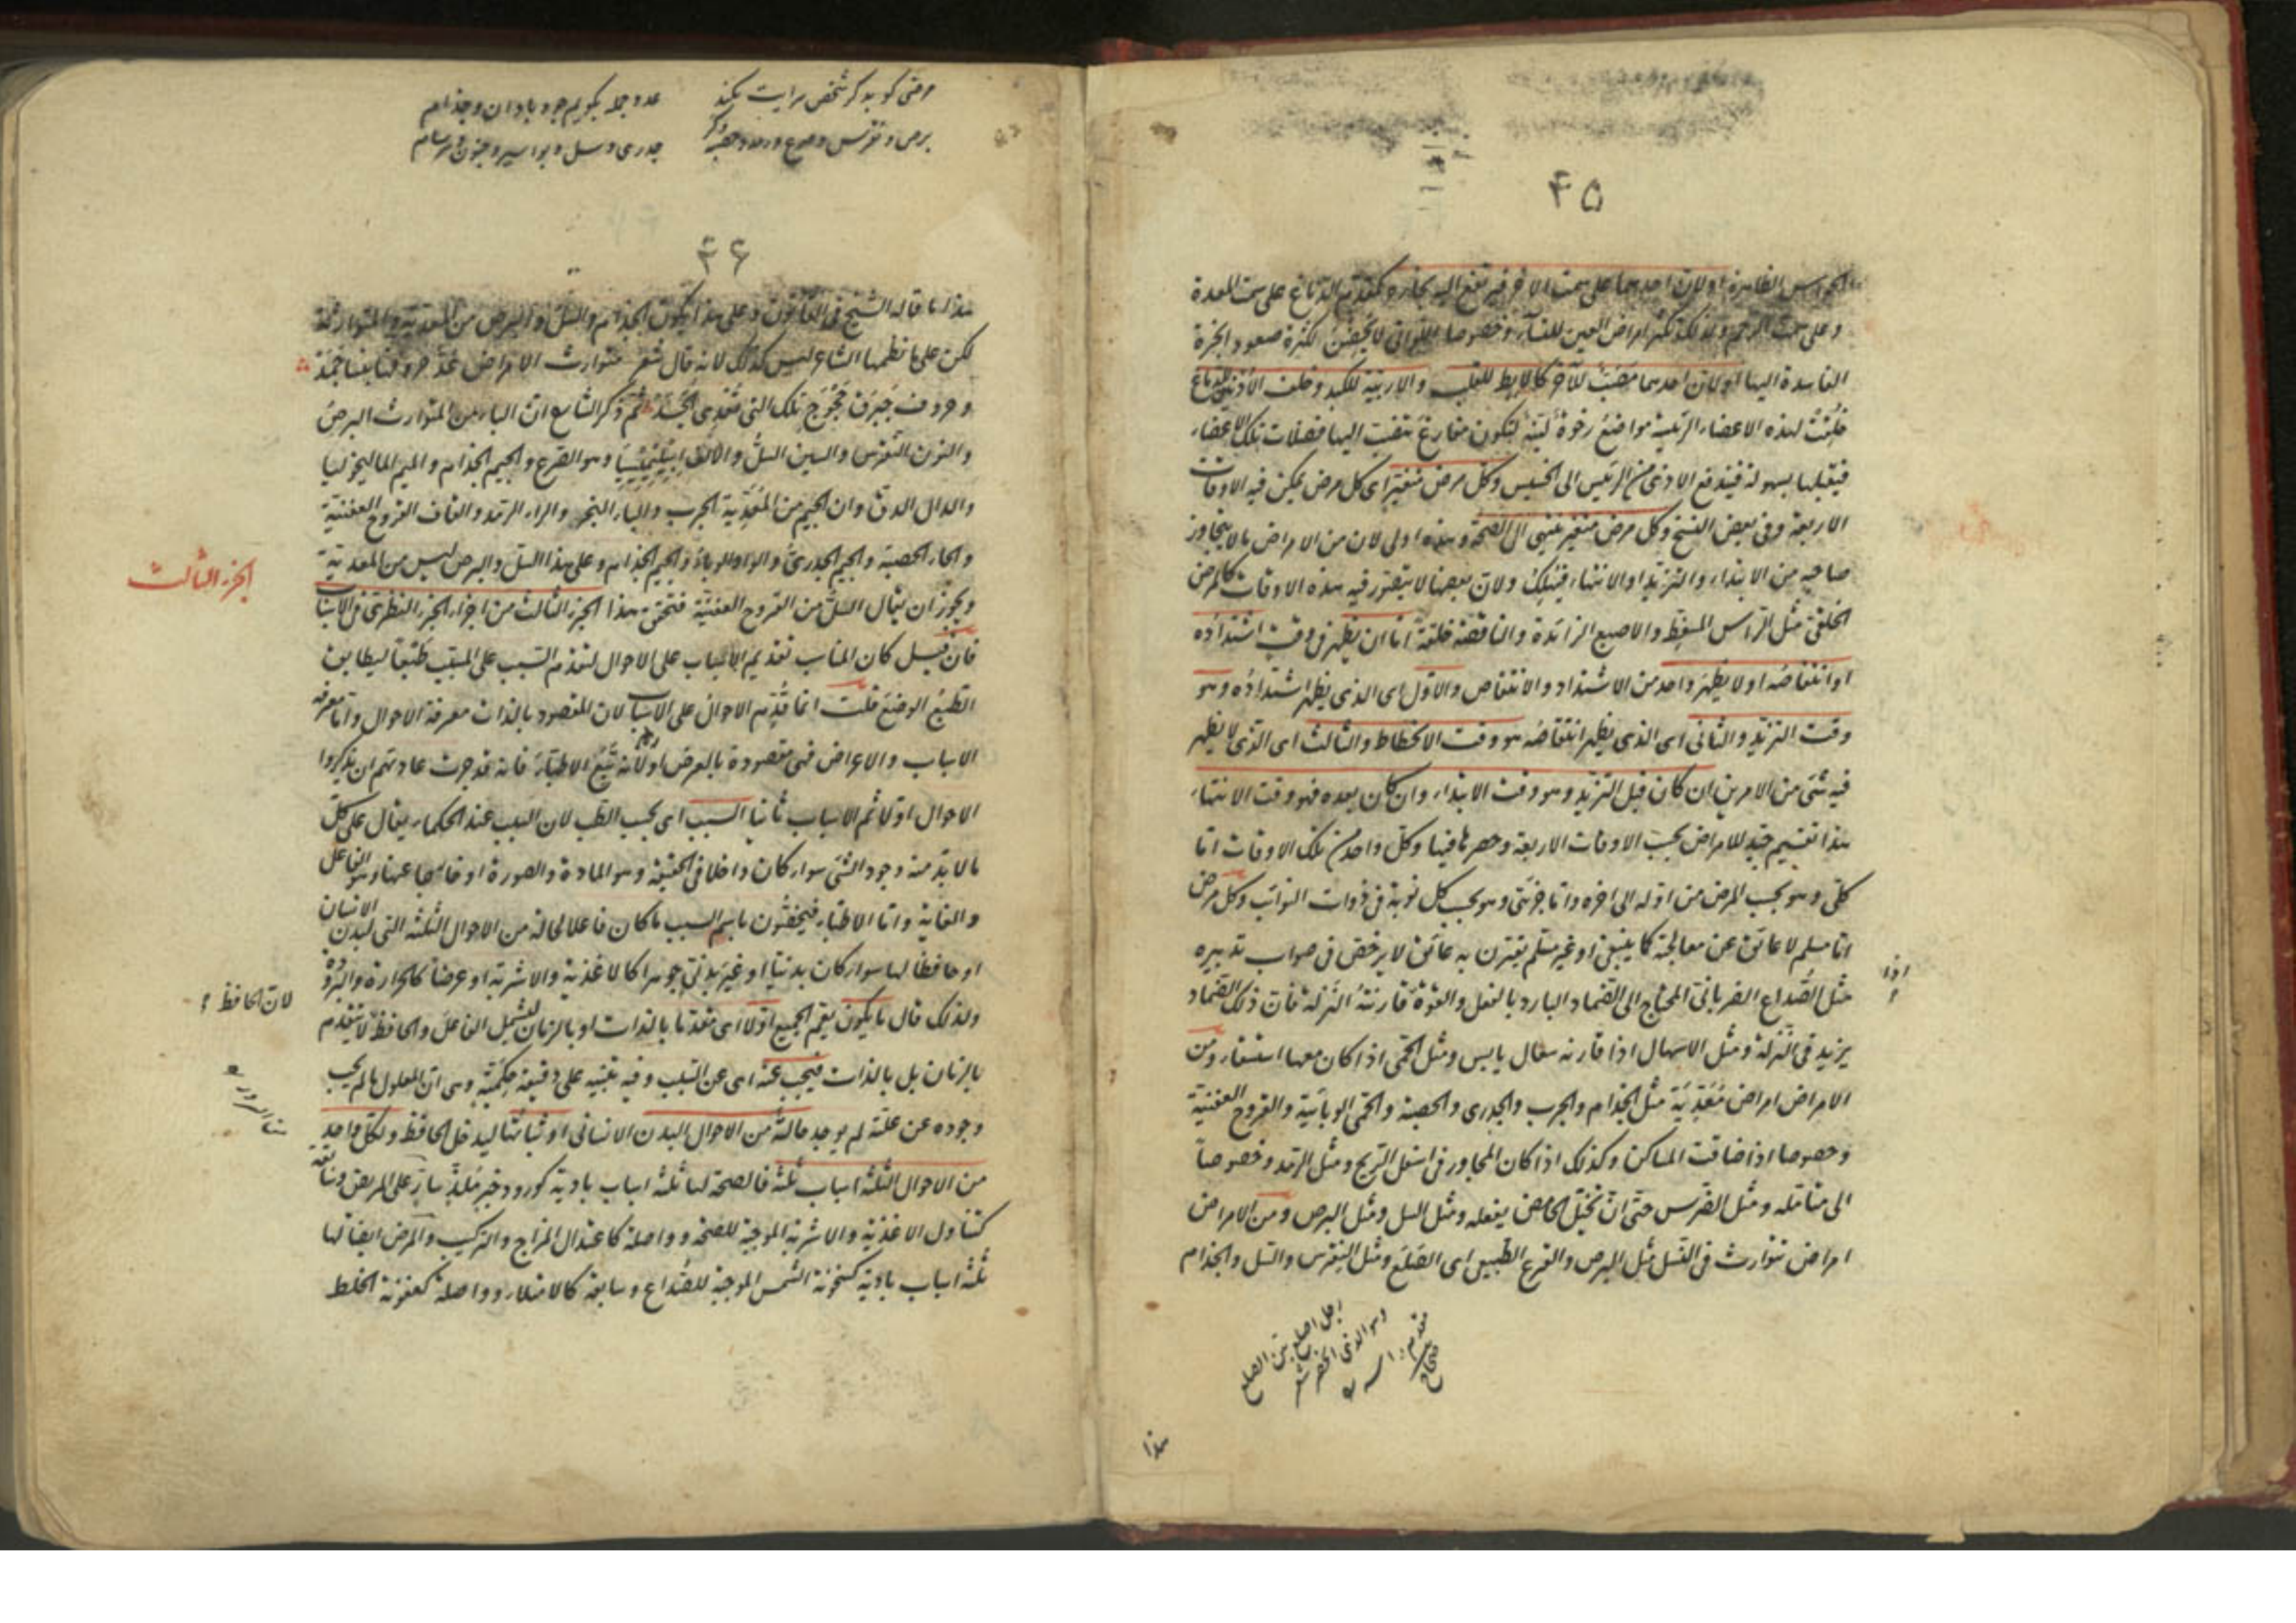 ۴۵
الحواس الظاهرة او لان احدهما على سمت الاخر فيرتفع اليه بخاره كتقدم الدماغ على سمت المعدة
وعلى سمت الرحم ولذلك تكثر امراض العين للنساء وخصوصا اللواتى لا يحضن لكثرة صعود ابخرة
الفاسدة اليها او لان احدهما مصبّ للآخر كالابط للقلب والاربية للكبد وخلف الاذنين للدماغ
خلقت لهذه الاعضاء الرئيسة مواضع رخوة لينة لتكون مفارغ تنصب اليها فضلات تلك الاعضاء
فيقبلها بسهولة فيندفع الاذى من الرئيس الى الخسيس وكل مرض متغير اى كل مرض يمكن فيه الاوقات
الاربعة وفى بعض النسخ وكل مرض متغير ينتهى الى الصحة وهذه اولى لان من الامراض ما لا يتجاوز
صاحبه من الابتداء والتزيد او الانتهاء فيهلك ولان بعضها لا يتصور فيه هذه الاوقات كالمرض
الخلقى مثل الراس المسفط والاصبع الزائدة والناقصة خلقة اما ان يظهر فى وقت اشتداده
او انتقاصه او لا يظهر واحد من الاشتداد والانتقاص والاول اى الذى يظهر اشتداده وهو
وقت التزيد والثانى اى الذى يظهر انتقاصه هو وقت الانحطاط والثالث اى الذى لا يظهر
فيه شئ من الامرين ان كان قبل التزيد وهو وقت الابتداء وان كان بعده فهو وقت الانتهاء
هذا تقسيم جيد للامراض بحسب الاوقات الاربعة وحصرها فيها وكل واحد من تلك الاوقات اما
كلى وهو بحسب المرض من اوله الى اخره واما جزئى وهو بحسب كل نوبة فى ذوات النوائب وكل مرض
اما مسلم لا عائق عن معالجته كما ينبغى او غير مسلم يقترن به عائق لا يرخص فى صواب تدبيره
مثل الصداع الضربانى المحتاج الى الضماد البارد بالفعل والقوة قارنته النزلة فان ذلك الضماد
اذا
يزيد فى النزلة ومثل الاسهال اذا قارنه سعال يابس ومثل الحمى اذا كان معها استسقاء ومن
الامراض امراض معدية مثل الجذام والجرب والجدرى والحصبة والحمى الوبائية والقروح العفنية
وخصوصا اذا ضاقت المساكن وكذلك اذا كان المجاور فى اسفل الريح ومثل الرمد وخصوصاً
الى متامله ومثل الضرس حتى ان تخيل الحامض يفعله ومثل السل ومثل البرص ومن الامراض
امراض تتوارث فى النسل مثل البرص والقرع الطبيعى اى الصلع ومثل النقرس والسل والجذام
رجل اصلع بيّن الصلع
وهو الذى انحسر شعر
مقدم راسه
صحاح
هذا
عدوجله بكويم جو بادان وجذام
جدرى وسل وبواسير وجنون
۴۶
هذا ما قاله الشيخ فى القانون وعلى هذا يكون الجذام والسل والبرص من المعدية والمتوارثة
لكن على ما نظمها الشاعر ليس كذلك لانه قال شعر
وحروف تلك التى تعدى الجسد ثم ذكر الشاعر ان الباء من المتوارث البرص
والنون النقرس والسين السل والالف وهو الصرع والجيم الجذام والميم الماليخوليا
والدال الدق وان الجيم من المعدية الجرب والباء البخر والراء الرمد والقاف القروح العفنية
والحاء الحصبة والجيم الجدرى والواو الوباء والجيم الجذام وعلى هذا السل والبرص ليس من المعدية
ويجوز ان يقال السل من القروح العفنية فتحقق هذا الجزء الثالث من اجزاء الجزء النظرى فى الاسباب
الجزء الثالث
فان قيل كان المناسب تقديم الاسباب على الاحوال لتقدم السبب على المسبب طبعا ليطابق
الطبع الوضع قلت انما قدم الاحوال على الاسباب لان المقصود بالذات معرفة الاحوال واما معرفة
الاسباب والاعراض فهى مقصودة بالعرض او لانه تبع الاطباء فانه قد جرت عادتهم ان يذكروا
الاحوال اولا ثم الاسباب ثانيا السبب اى بحسب الطب لان السبب عند الحكماء يقال على كل
ما لا بد منه وجود الشئ سواء كان داخلا فى الحقيقة وهو المادة والصورة او خارجا عنها وهو الفاعل
والغاية واما الاطباء فيخصون باسم السبب ما كان فاعلا لحالة من الاحوال الثلثة التى لبدن الانسان
او حافظا لها سواء كان بدنيا او غير بدنى جوهرا كالاغذية والاشربة او عرضا كالحرارة والبرودة
ولذلك قال ما يكون يقع الجميع اولا اى متقدما بالذات او بالزمان ليشمل الفاعل والحافظ لا يتقدم
لان الحافظ
بالزمان بل بالذات فيجب عنه اى عن السبب وفيه تنبيه على دقيقة حكمية وهى ان المعلول ما لم يجب
وجوده عن علته لم يوجد حالة من الاحوال البدن الانسانى او ثباتها ليدخل الحافظ ولكل واحد
من الاحوال الثلثة اسباب ثلثة فالصحة لها ثلثة اسباب بادية كورود خبر ملذ سار على المريض وسابقة
كتناول الاغذية والاشربة الموجبة للصحة وواصلة كاعتدال المزاج والتركيب والمرض ايضا لها
ثلثة اسباب بادية كسخونة الشمس الموجبة للصداع وسابقة كالامتلاء وواصلة كعفونة الخلط